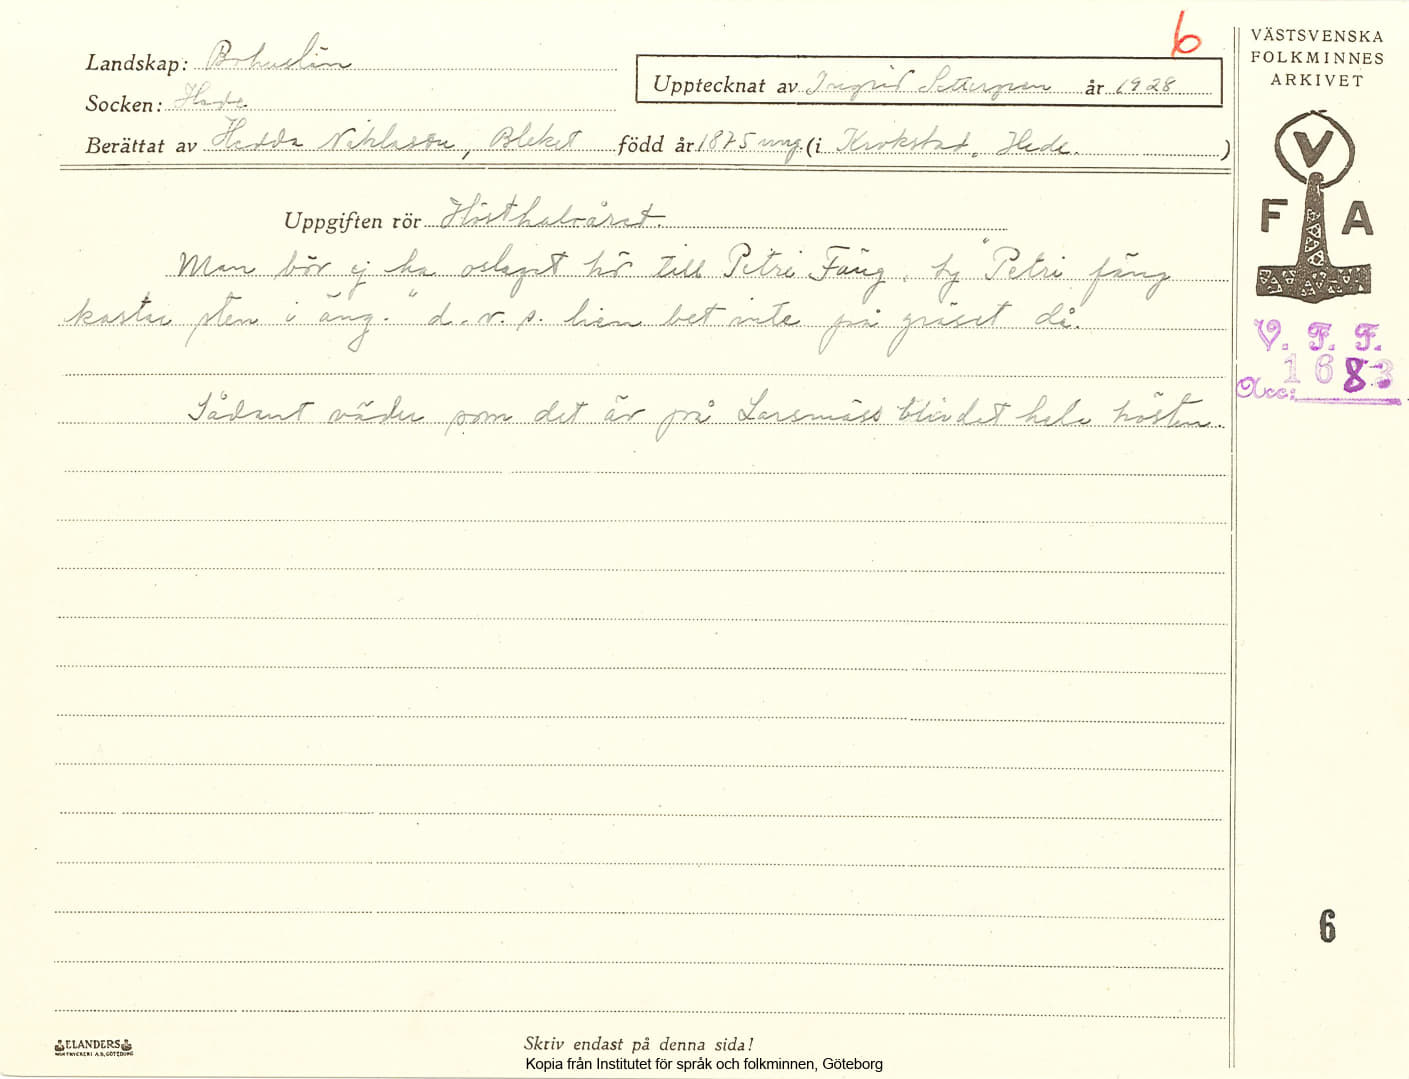 6
VÄSTSVENSKA
FOLKMINNES
ARKIVET
Landskap: Bohuslän
Upptecknat av Ingrid år 1928
Socken: Hede
Berättat av Hedda Niklasson, Bleket född år 1875 (i Krokstad, Hede.)
V
F A
Uppgiften rör Hösthalvåret.
Man bör ej ha oslaget hö till Petri Fäng, ty "Petri fäng
kastar sten i äng." d.v.s. lien bet inte på gräset då.
V. F. F.
Acc: 1683
Sådant väder som det är på Larsmäss blir det hela hösten.
6
ELANDERS
Skriv endast på denna sida!
Kopia från Institutet för språk och folkminnen, Göteborg